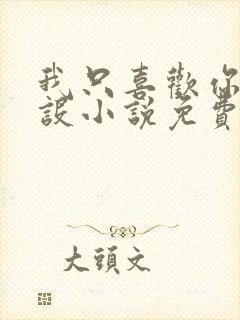 我只喜歡你
設小說免費
大頭文